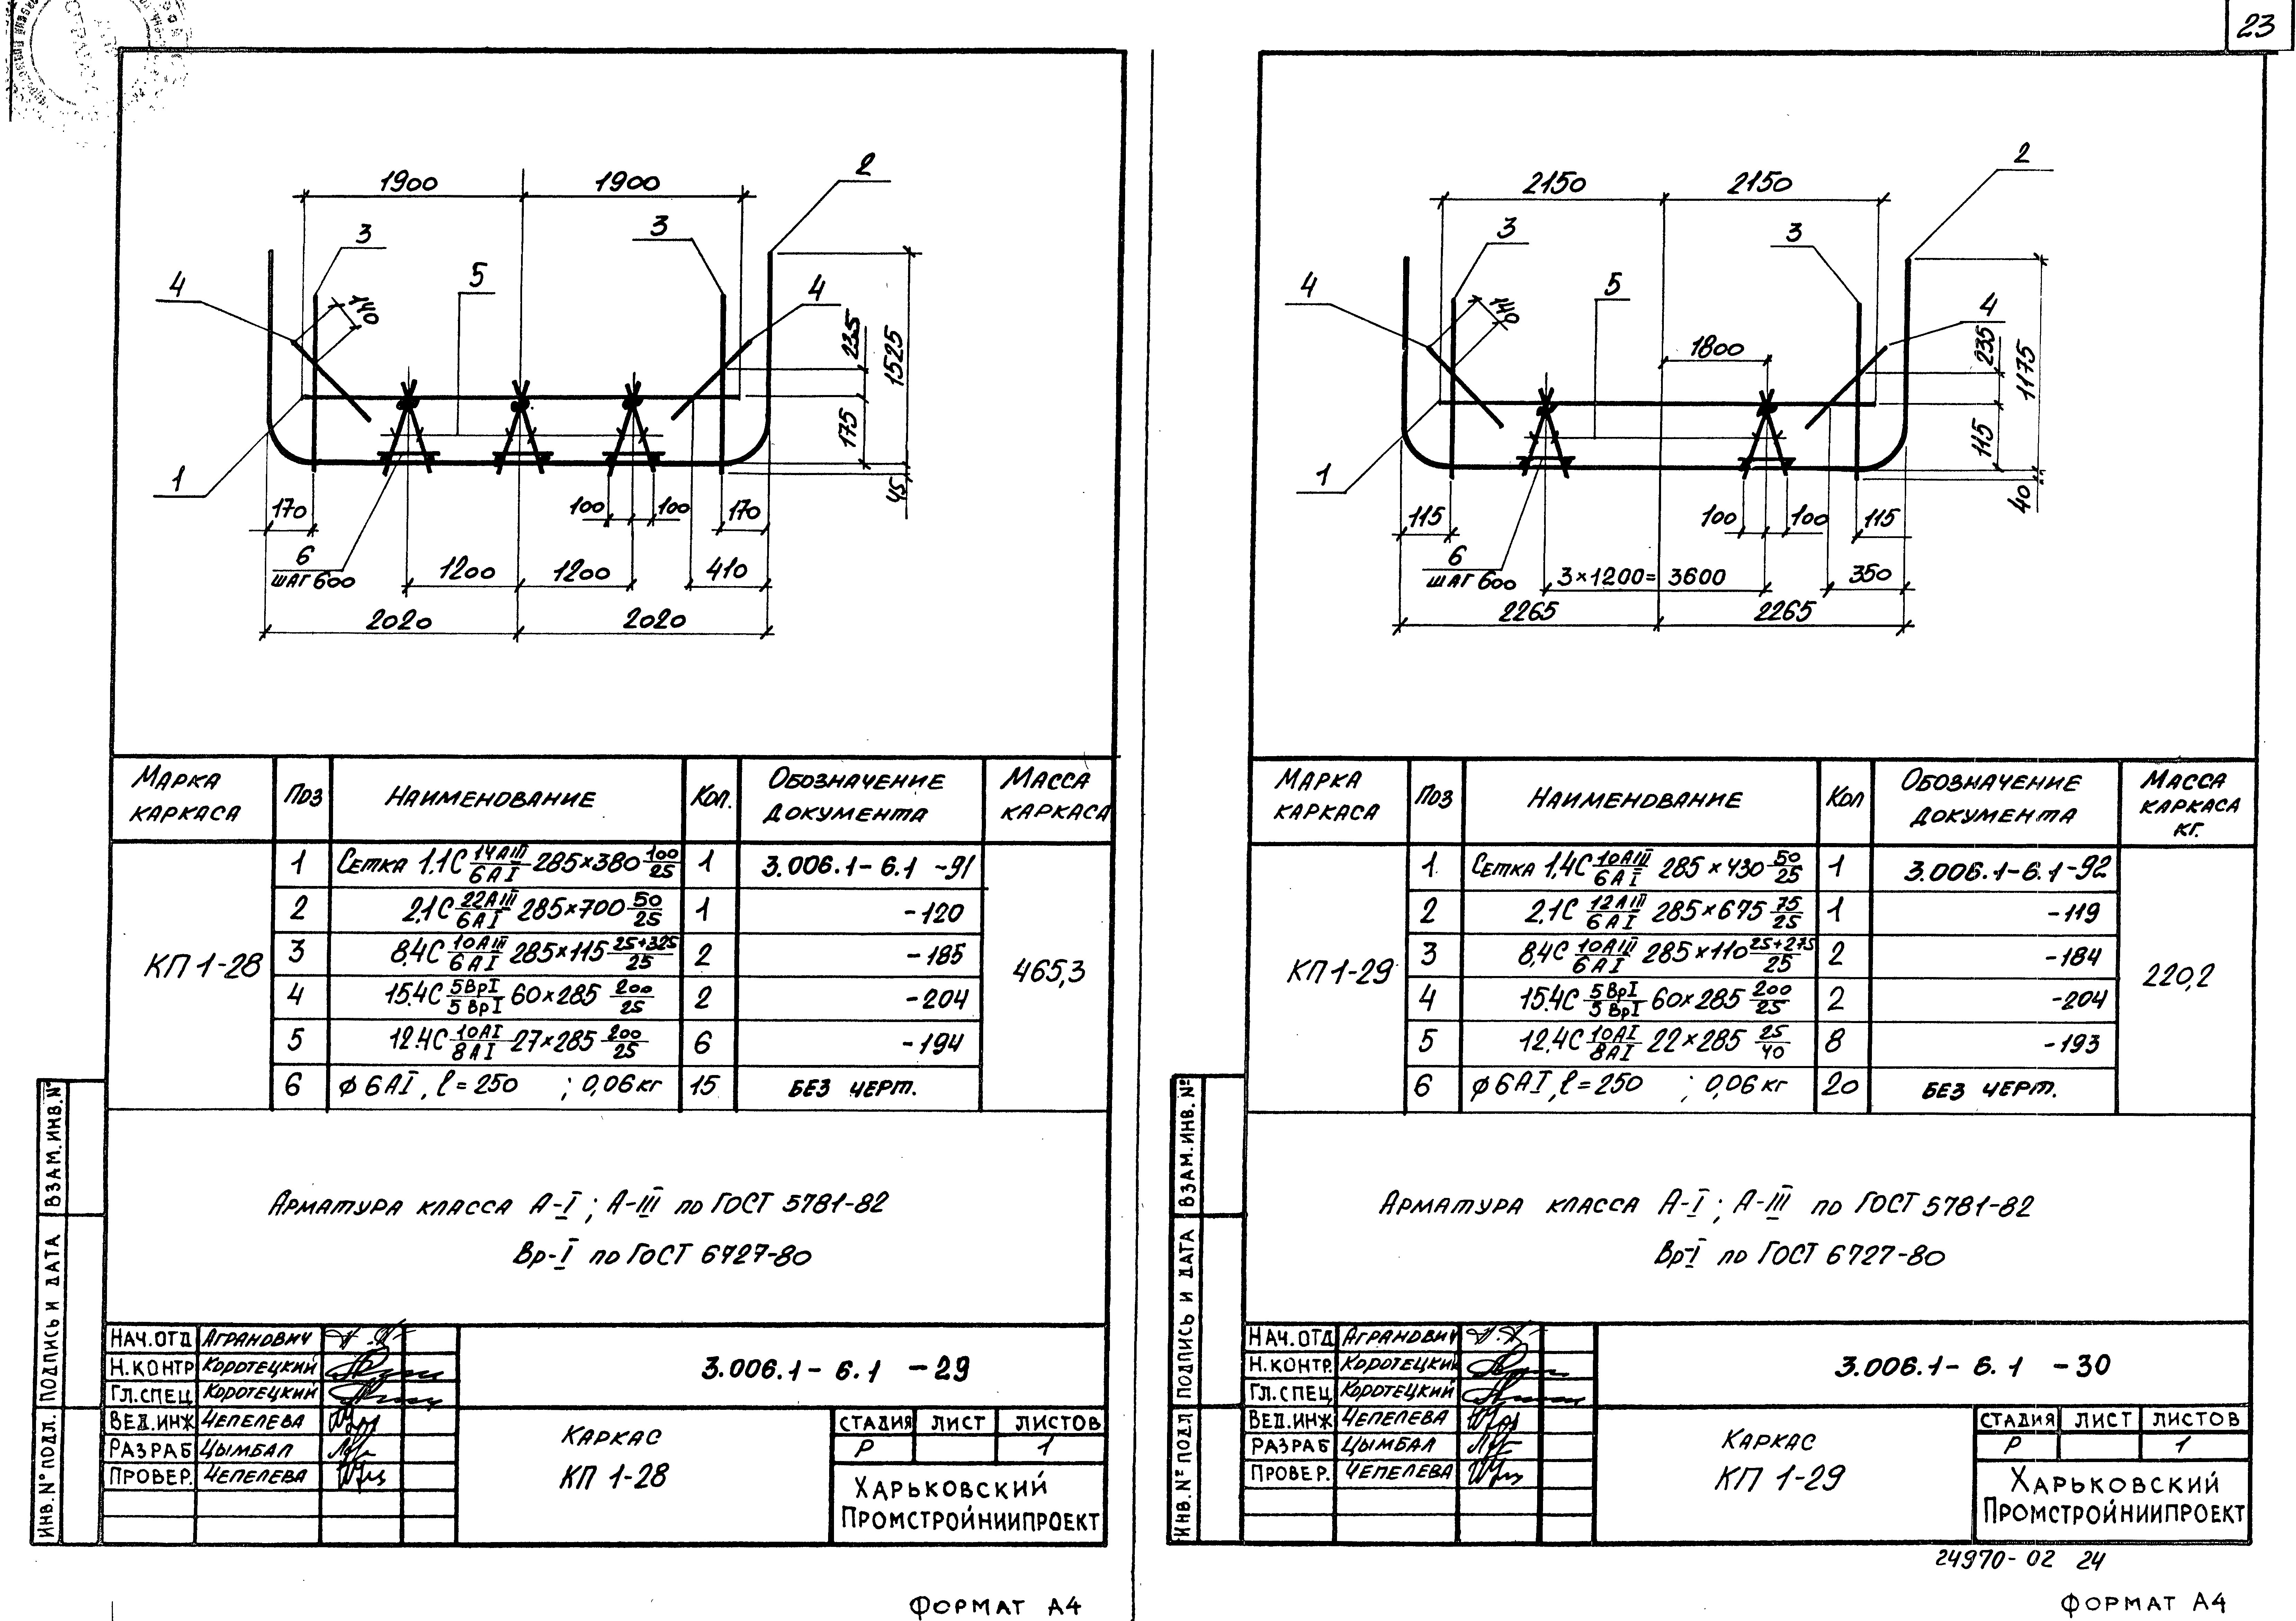 23
1900 1900
2
3
3
4
5
140
4
235
1525
175
45
1
170
100 100
170
6
ШАГ 600
1200 1200
410
2020 2020
МАРКА КАРКАСА ПОЗ НАИМЕНОВАНИЕ КОЛ. ОБОЗНАЧЕНИЕ ДОКУМЕНТА МАССА КАРКАСА
КП 1-28
1 СЕТКА 1.1С 14АIII/6АI 285×380 100/25 1 3.006.1-6.1 -91
2 2.1С 22АIII/6АI 285×700 50/25 1 -120
3 8.4С 10АIII/6АI 285×115 25+325/25 2 -185
4 15.4С 5ВрI/5ВрI 60×285 200/25 2 -204
5 12.4С 10АI/8АI 27×285 200/25 6 -194
6 ф6АI, ℓ=250 ; 0,06кг 15 БЕЗ ЧЕРТ.
465,3
АРМАТУРА КЛАССА А-I; А-III ПО ГОСТ 5781-82
Вр-I ПО ГОСТ 6727-80
ИНВ. № ПОДЛ. ПОДПИСЬ И ДАТА ВЗАМ.ИНВ.№
НАЧ.ОТД АГРАНОВИЧ
Н.КОНТР КОРОТЕЦКИЙ
ГЛ.СПЕЦ КОРОТЕЦКИЙ
ВЕД.ИНЖ ЧЕПЕЛЕВА
РАЗРАБ ЦЫМБАЛ
ПРОВЕР. ЧЕПЕЛЕВА
3.006.1- 6.1 -29
КАРКАС
КП 1-28
СТАДИЯ ЛИСТ ЛИСТОВ
Р 1
ХАРЬКОВСКИЙ
ПРОМСТРОЙНИИПРОЕКТ
ФОРМАТ А4
2150 2150
2
3
3
4
5
140
4
1800
235
1175
115
40
1
115
100 100
115
6
ШАГ 600
3×1200= 3600
350
2265 2265
МАРКА КАРКАСА ПОЗ НАИМЕНОВАНИЕ КОЛ ОБОЗНАЧЕНИЕ ДОКУМЕНТА МАССА КАРКАСА КГ.
КП 1-29
1 СЕТКА 1.4С 10АIII/6АI 285×430 50/25 1 3.006.1-6.1-92
2 2.1С 12АIII/6АI 285×675 75/25 1 -119
3 8.4С 10АIII/6АI 285×110 25+275/25 2 -184
4 15.4С 5ВрI/5ВрI 60×285 200/25 2 -204
5 12.4С 10АI/8АI 22×285 25/40 8 -193
6 ф6АI, ℓ=250 ; 0,06кг 20 БЕЗ ЧЕРТ.
220,2
АРМАТУРА КЛАССА А-I; А-III ПО ГОСТ 5781-82
Вр-I ПО ГОСТ 6727-80
ИНВ. № ПОДЛ ПОДПИСЬ И ДАТА ВЗАМ.ИНВ.№
НАЧ.ОТД АГРАНОВИЧ
Н.КОНТР. КОРОТЕЦКИЙ
ГЛ.СПЕЦ КОРОТЕЦКИЙ
ВЕД.ИНЖ ЧЕПЕЛЕВА
РАЗРАБ ЦЫМБАЛ
ПРОВЕР. ЧЕПЕЛЕВА
3.006.1- 6.1 -30
КАРКАС
КП 1-29
СТАДИЯ ЛИСТ ЛИСТОВ
Р 1
ХАРЬКОВСКИЙ
ПРОМСТРОЙНИИПРОЕКТ
24970-02 24
ФОРМАТ А4